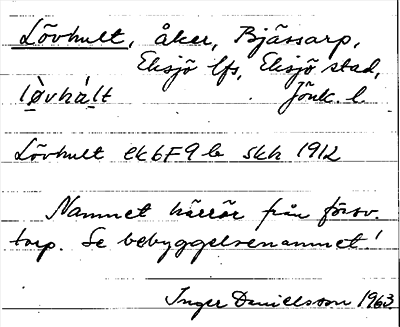 Lövhult, åker, Bjässarp,
Eksjö lfs, Eksjö stad,
lø̀vhál̠t Jönk. l.
Lövhult ek 6F9b skh 1912
Namnet härrör från försv.
torp. Se bebyggelsenamnet!
Inger Danielsson 1963